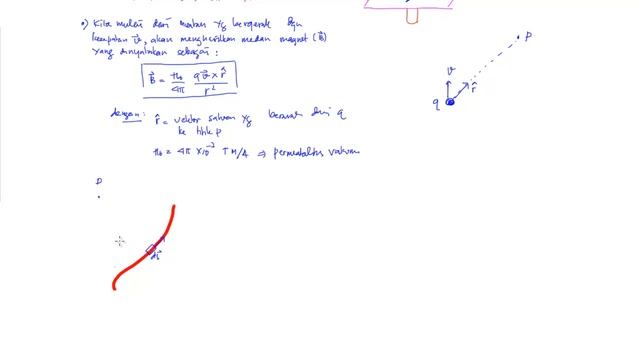 •) Kita mulai dari muatan yg bergerak dgn
kecepatan v⃗, akan menghasilkan medan magnet (B⃗)
yang dinyatakan sebagai:
B⃗ = μ₀/4π q v⃗ × r̂ / r²
dengan: r̂ = vektor satuan yg berarah dari q
ke titik P
μ₀ = 4π × 10⁻⁷ T m/A ⇒ permeabilitas vakum
P
v⃗
r̂
q
P
dl⃗